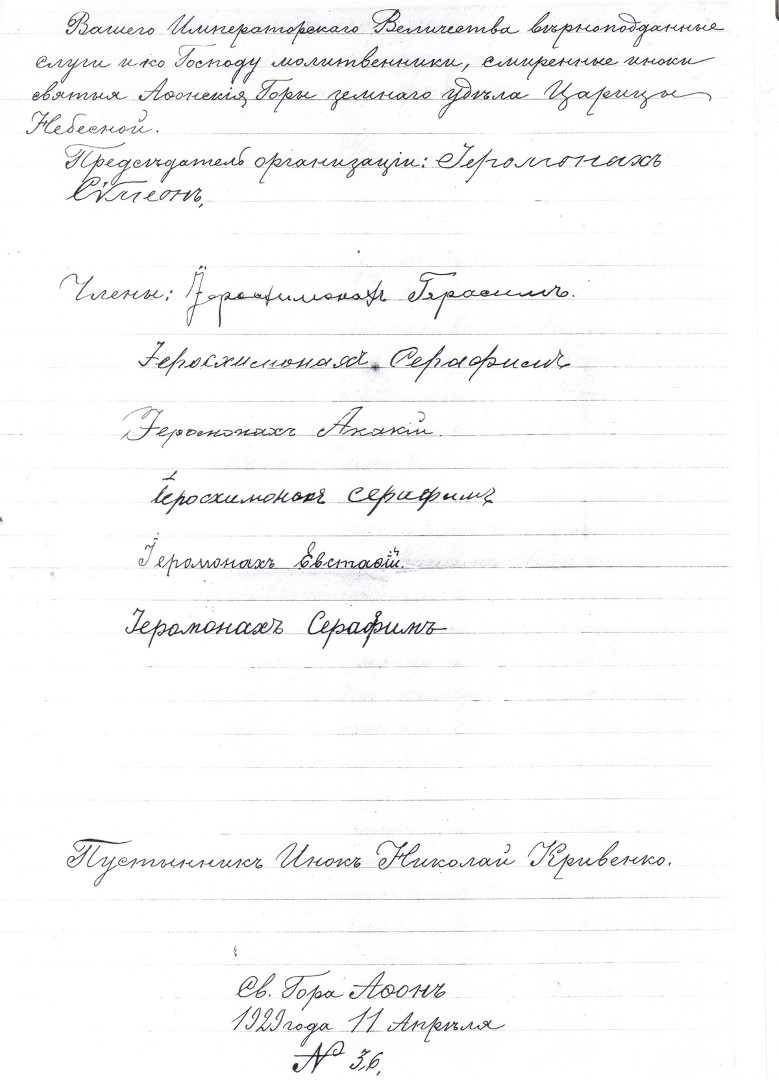 Вашего Императорскаго Величества вѣрноподданные
слуги и ко Господу молитвенники, смиренные иноки
святыя Аѳонскія Горы земнаго удѣла Царицы
Небесной.
Предсѣдатель организаціи: Іеромонахъ
Сѵмеонъ.
Члены: Іеросхимонахъ Герасимъ.
Іеросхимонахъ Серафимъ
Іеромонахъ Акакій.
Іеросхимонахъ Серафимъ
Іеромонахъ Евстаѳій.
Іеромонахъ Серафимъ
Пустынникъ Инокъ Николай Кривенко.
Св. Гора Аѳонъ
1929 года 11 Апрѣля
№ 36.